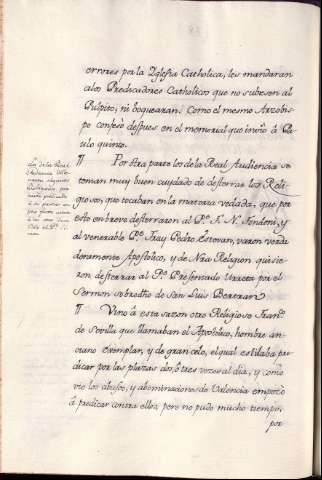 errores por la Yglesia Catholica, les mandaran
a los Predicadores Catholicos que no subiesen al
Pulpito, ni boquearan. Como el mesmo Arzobis-
po confesò despues en el memorial que inviò à Pa-
ulo quinto.
¶ Por otra parte los de la Real Audiencia se
tenian muy buen cuydado de desterrar los Reli-
giosos, que tocaban en la materia vedada, que por
esto en breve desterraron al P.e F. N. Fondoni, y
al venerable P.e Fray Pedro Estevan, varon verda-
deramente Apostolico, y de Nra Religion quisie-
ron desterrar al P.e Presentado Urreta por el
Sermon sobredho de San Luis Bertran.
¶ Vino à esta sazon otro Religioso Fran.co
de Sevilla que llamaban el Apostolico, hombre an-
ciano exemplar, y de gran celo, el qual estilaba pre-
dicar por las plazas dos, ò tres vezes al dia, y como
vio los abusos, y abominaciones de Valencia empezò
à predicar contra ellos, pero no pudo mucho tiempo,
por
Los de la Real
Audiencia